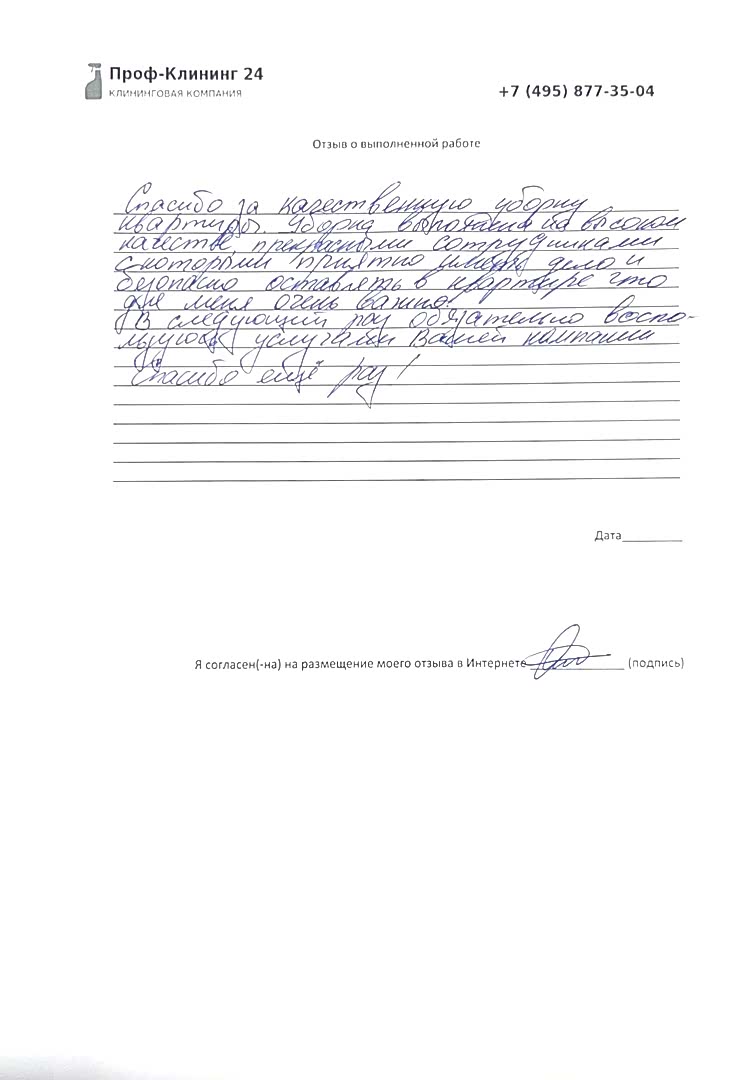 Проф-Клининг 24
КЛИНИНГОВАЯ КОМПАНИЯ
+7 (495) 877-35-04
Отзыв о выполненной работе
Спасибо за качественную уборку
квартиры. Уборка выполнена на высоком
качестве, прекрасными сотрудниками
с которыми приятно иметь дело и
безопасно оставлять в квартире что
для меня очень важно.
В следующий раз обязательно воспо-
льзуюсь услугами Вашей компании
Спасибо ещё раз!
Дата
Я согласен(-на) на размещение моего отзыва в Интернете (подпись)